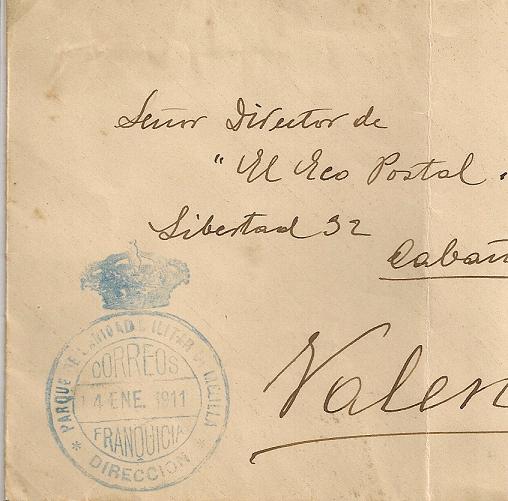 Señor Director de
"El Eco Postal"
Libertad 32
Cabañ
Valen
PARQUE DE SANIDAD MILITAR DE MELILLA
CORREOS
4 ENE. 1911
FRANQUICIA
* DIRECCION *